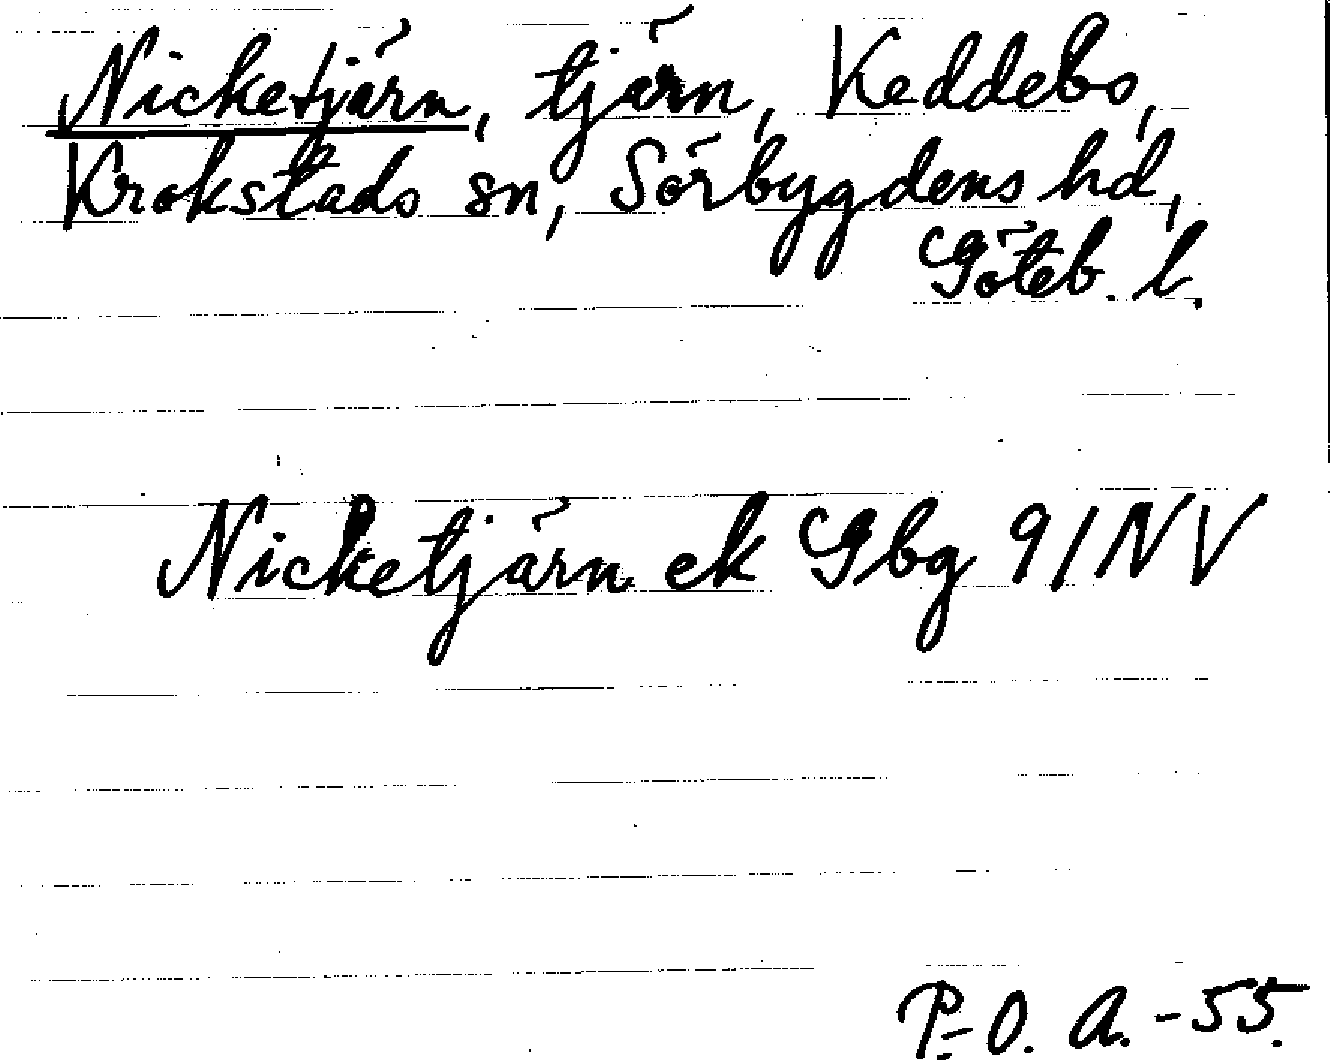 Nicketjärn, tjärn, Keddebo,
Krokstads sn, Sörbygdens hd,
Göteb. l.
Nicketjärn ek Gbg 9/NV
P.-O. A. -55.